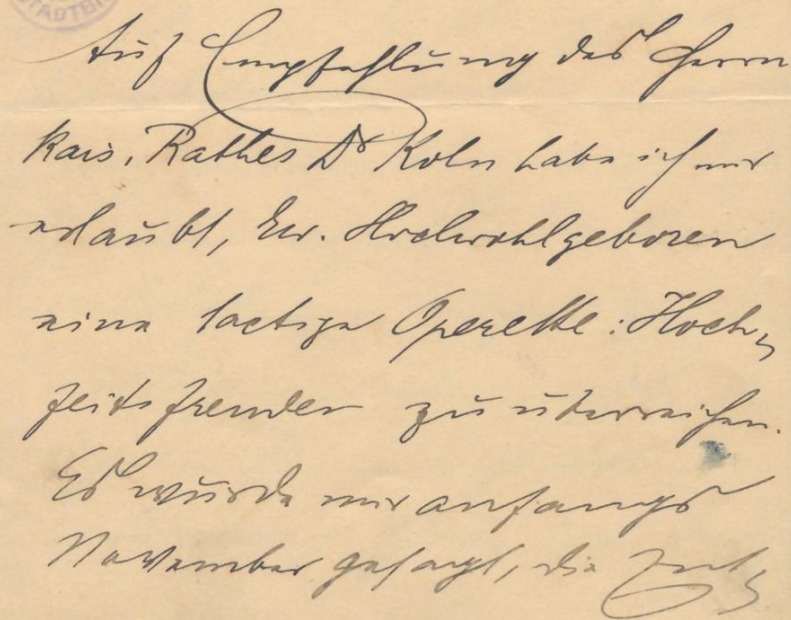 STADTBI
Auf Empfehlung des Herrn
kais. Rathes Dr Kohn habe ich mir
erlaubt, Euer. Hochwohlgeboren
eine 1actige Operette: Hoch-
zeitsfreuden zu überreichen.
Es wurde mir anfangs
November gesagt, die